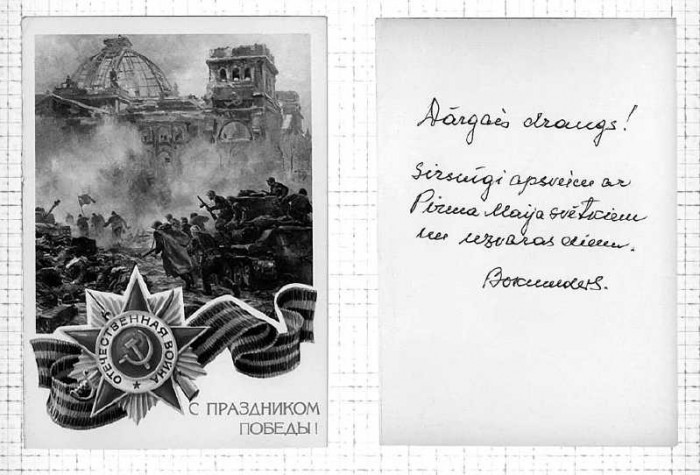 ОТЕЧЕСТВЕННАЯ ВОЙНА
С ПРАЗДНИКОМ
ПОБЕДЫ!
Dārgais draugs!
Sirsnīgi apsveicu ar
Pirmā Maija svētkiem
un uzvaras dienu.